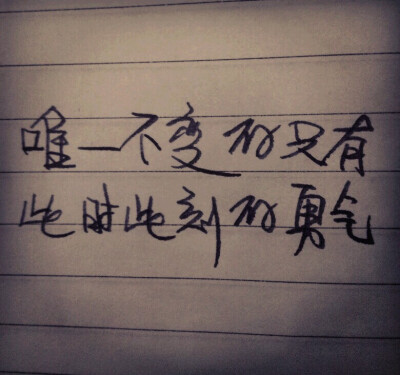 唯一不变的只有
此时此刻的勇气